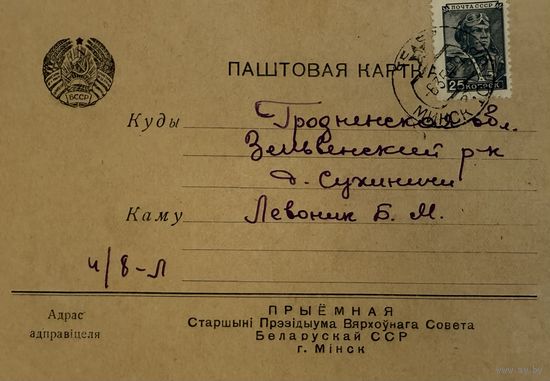 ПОЧТА СССР
25 КОПЕЕК
МИНСК
БССР
ПАШТОВАЯ КАРТКА
Куды Гродненская обл.
Зельвенский р-к
д. Сухиничи
Каму Левоник Б. М.
ч/8-л
Адрас адправіцеля
ПРЫЁМНАЯ
Старшыні Прэзідыума Вярхоўнага Совета
Беларускай ССР
г. Мінск
www.ay.by